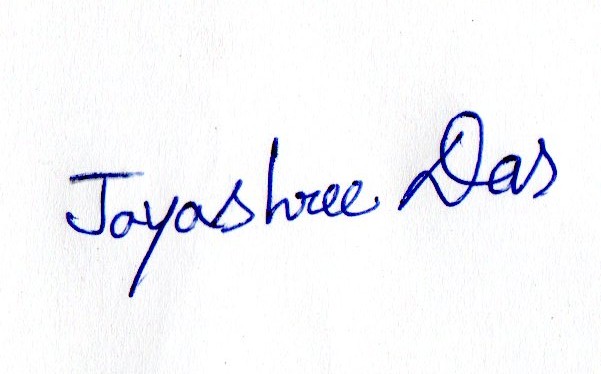 Jayashree Das